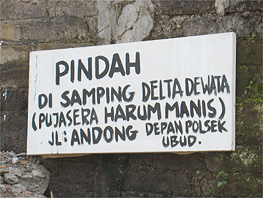 PINDAH
DI SAMPING DELTA DEWATA
(PUJASERA HARUM MANIS)
JL: ANDONG DEPAN POLSEK
UBUD.